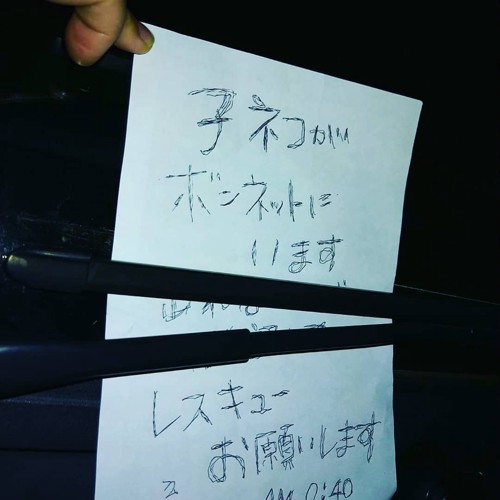 子ネコが
ボンネットに
います
レスキュー
お願いします
AM 0:40